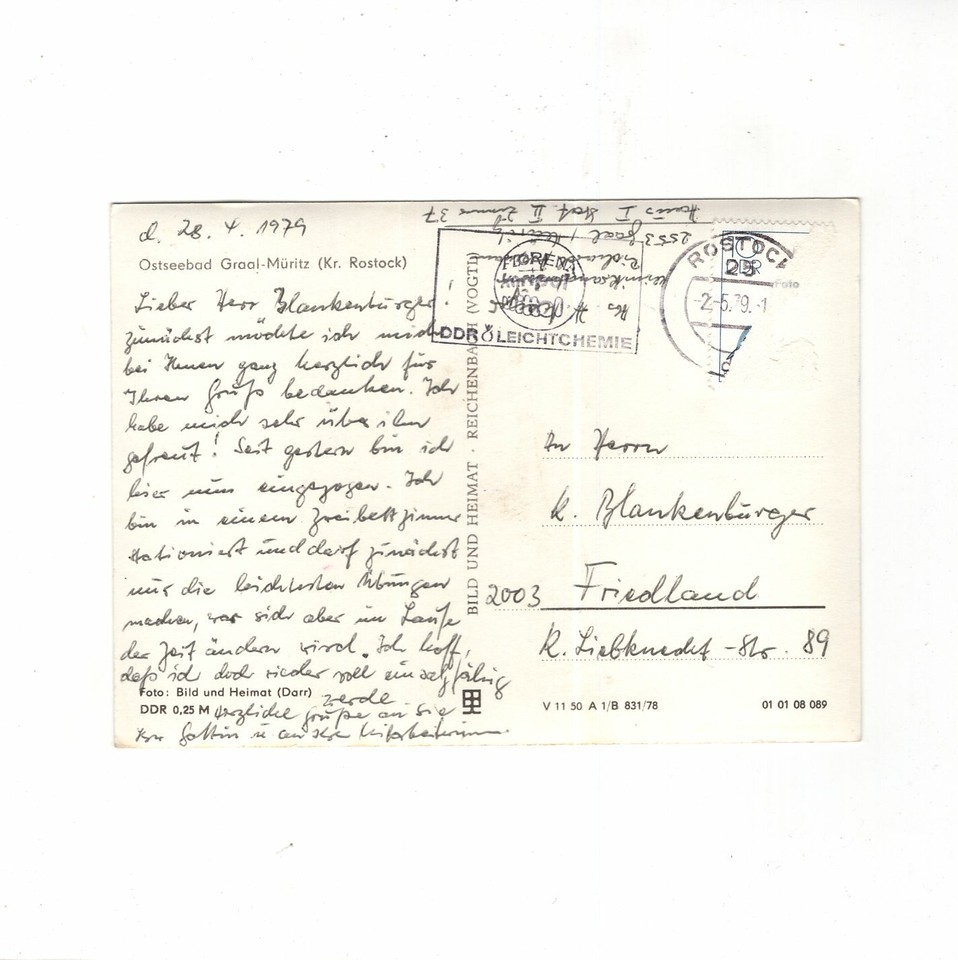 d. 28. 4. 1979
Ostseebad Graal-Müritz (Kr. Rostock)
Lieber Herr Blankenbürger!
zunächst möchte ich mich
bei Ihnen ganz herzlich für
Ihren Gruß bedanken. Ich
habe mich sehr über ihn
gefreut! Seit gestern bin ich
hier nun eingezogen. Ich
bin in einem Zweibettzimmer
stationiert und darf zunächst
nur die leichtesten Übungen
machen, was sich aber im Laufe
der Zeit ändern wird. Ich hoff,
daß ich doch wieder voll einsatzfähig
werde
Herzliche Grüße an Sie
Ihre Gattin u. an Ihre Mitarbeiterinnen.
Foto: Bild und Heimat (Darr)
DDR 0,25 M
BILD UND HEIMAT · REICHENBACH (VOGTL)
V 11 50 A 1/B 831/78
01 01 08 089
Haus I Stat. II Zimmer 37
2553 Graal / Müritz
DDR LEICHTCHEMIE
ROSTOCK
25
DDR
-2.-5.79.-1
Foto
An Herrn
K. Blankenbürger
2003 Friedland
K. Liebknecht-Str. 89